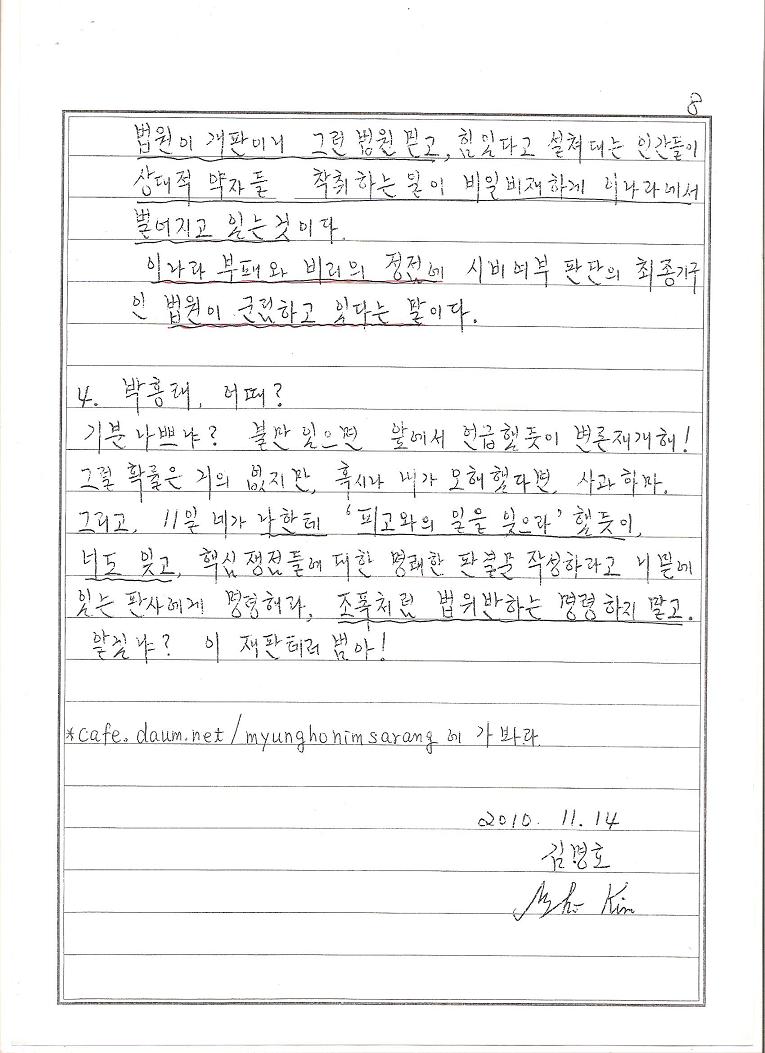 8
법원이 개판이니 그런 법원 믿고, 힘있다고 설쳐대는 인간들이
상대적 약자들 착취하는 일이 비일비재하게 이나라에서
벌어지고 있는것이다.
이나라 부패와 비리의 정점에 시비여부 판단의 최종기구
인 법원이 군림하고 있다는 말이다.
4. 박흥대, 어때?
기분 나쁘냐? 불만 있으면 앞에서 언급했듯이 변론재개해!
그럴 확률은 거의 없지만, 혹시나 내가 오해했다면, 사과하마.
그리고, 11일 네가 나한테 '피고와의 일을 잊으라' 했듯이,
너도 잊고, 핵심쟁점들에 대한 명쾌한 판결문 작성하라고 니 밑에
있는 판사에게 명령해라, 조폭처럼 법위반하는 명령하지 말고.
알겠냐? 이 재판테러범아!
*cafe.daum.net/myunghonimsarang 에 가봐라
2010. 11. 14
김명호
Mho Kim